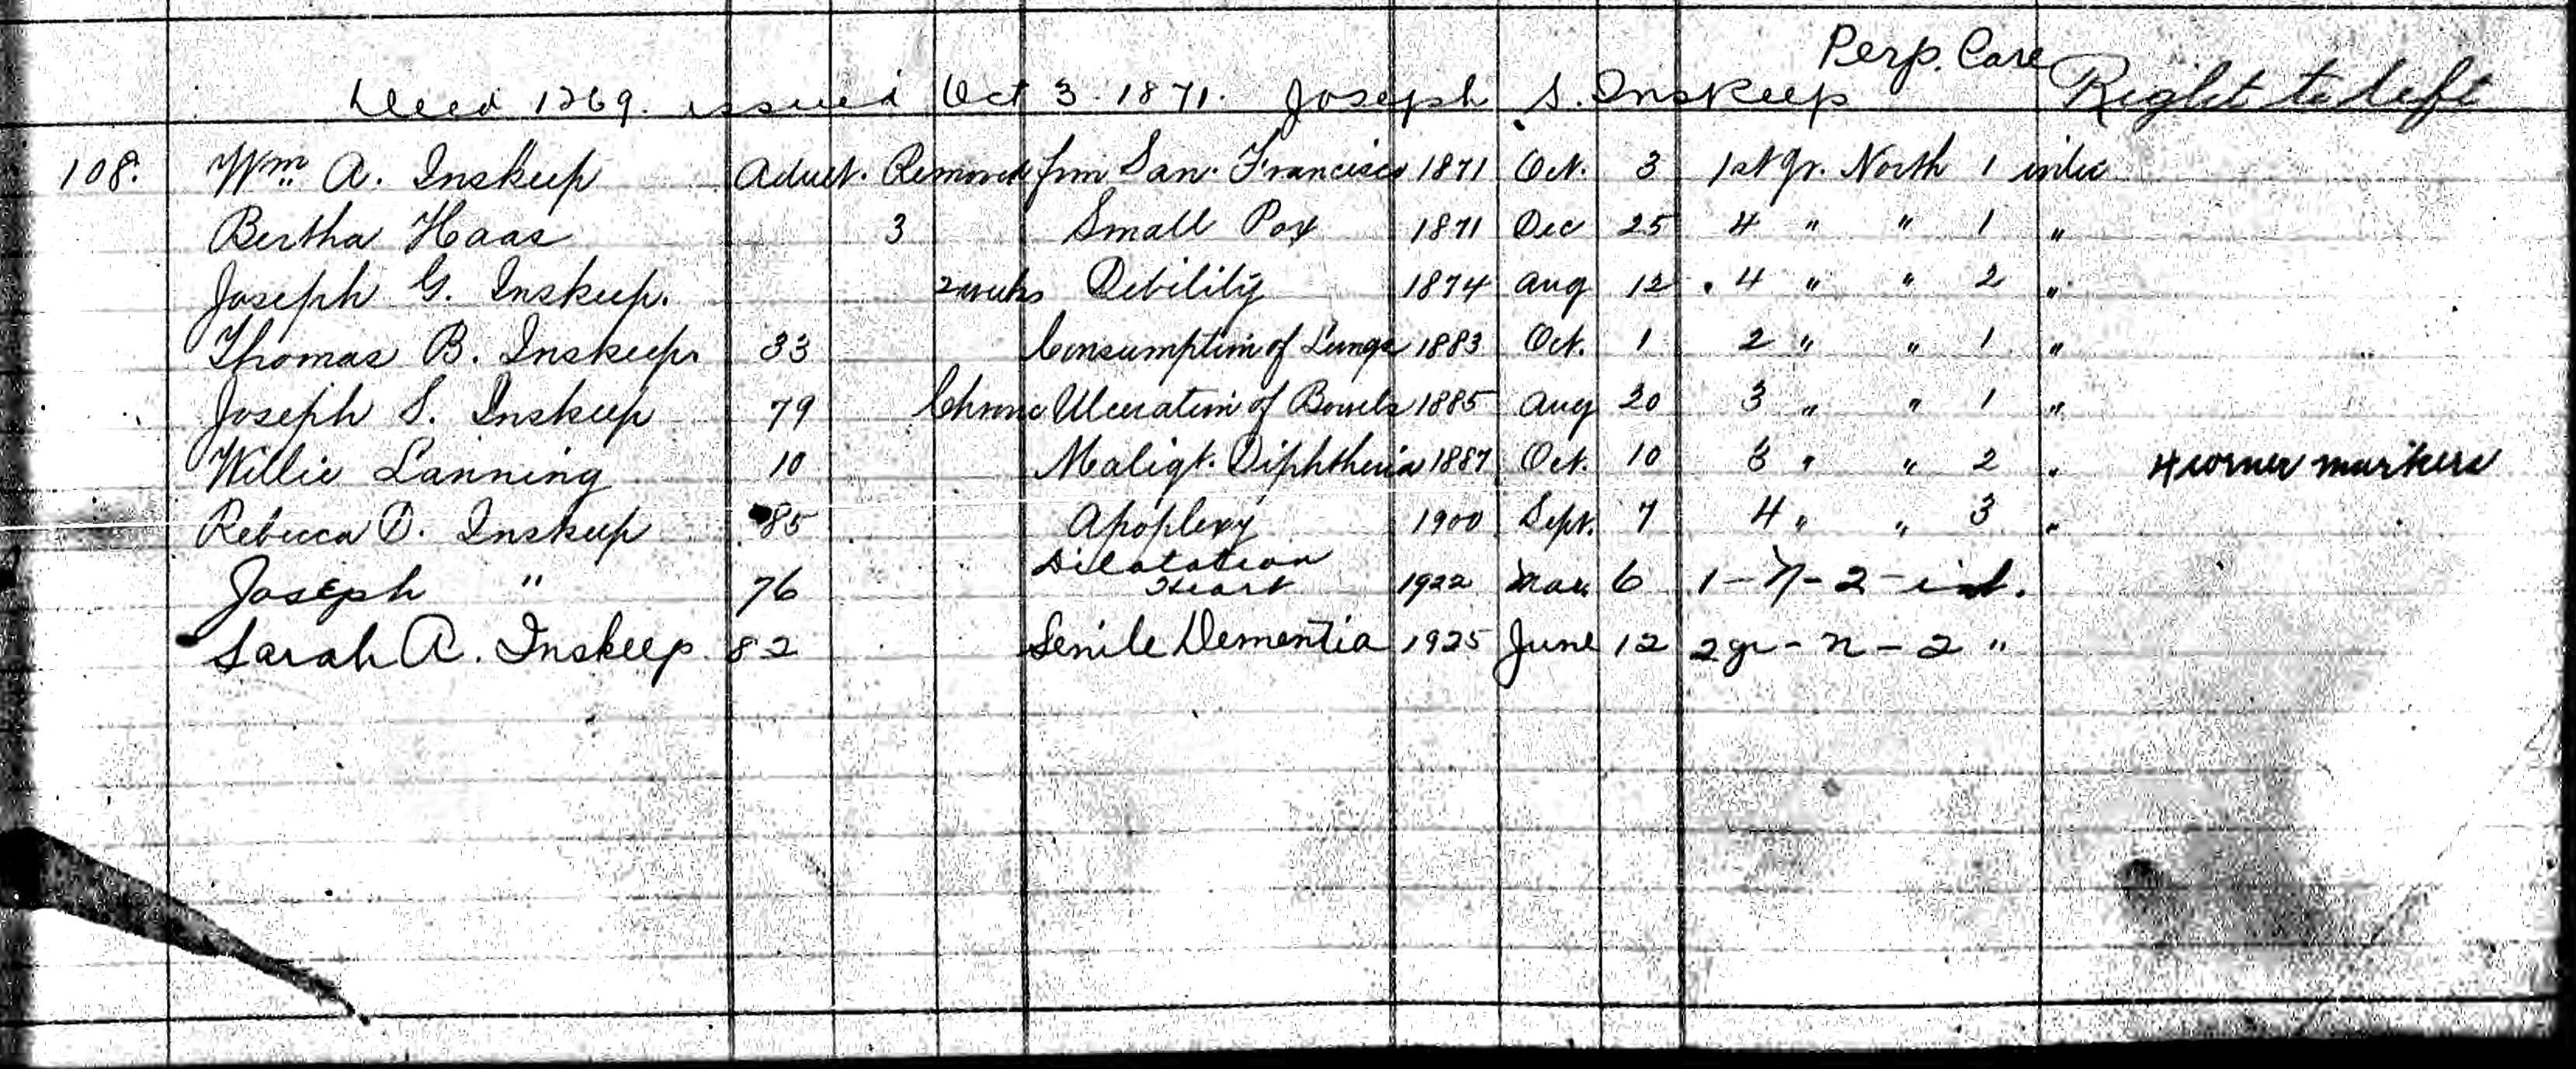 Perp. Care
Deed 1269. issued Oct 3. 1871. Joseph S. Inskeep Right to left
108. Wm. A. Inskeep Adult. Removed from San. Francisco 1871 Oct. 3 1st gr. North 1
Bertha Haas 3 Small Pox 1871 Dec 25 4 " " 1 "
Joseph G. Inskeep. 2 weeks Debility 1874 Aug 12 4 " " 2 "
Thomas B. Inskeep. 33 Consumption of Lungs 1883 Oct. 1 2 " " 1 "
Joseph S. Inskeep 79 Chronc Ulceration of Bowels 1885 Aug 20 3 " " 1 "
Willie Lanning 10 Maligt. Diphtheria 1887 Oct. 10 3 " " 2 " 4 corner markers
Rebecca D. Inskeep 85 Apoplexy 1900 Sept. 7 4 " " 3 "
Joseph " 76 Dilatation Heart 1922 6 1 - N - 2 -
Sarah A. Inskeep 82 Senile Dementia 1925 June 12 2 gr - n - 2 "